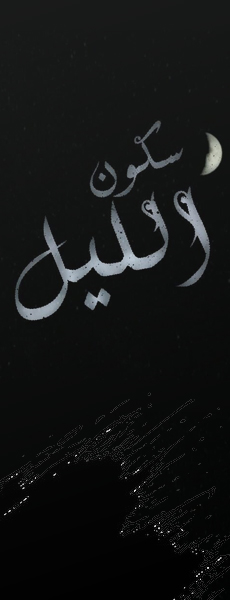 سكون
الليل